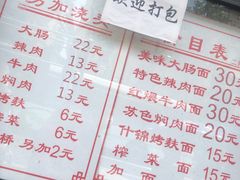 欢迎打包
另加浇头
大肠 22元
辣肉 13元
牛肉 22元
焖肉 13元
烤麸 6元
菜 6元
另加2元
目表
美味大肠面 30元
特色辣肉面 20元
红烧牛肉面 30元
苏色焖肉面 20元
什锦烤麸面 15元
榨菜面 15元